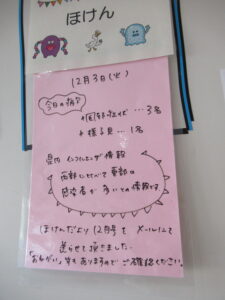 ほけん
12月3日(火)
今日の病欠
…3名
…1名
県内 インフルエンザ 情報
西部にくらべて東部の
感染者が多いとの情報です
ほけんだより12月号を メールにて
送らせて頂きました。
"おねがい"等ありますのでご確認ください。